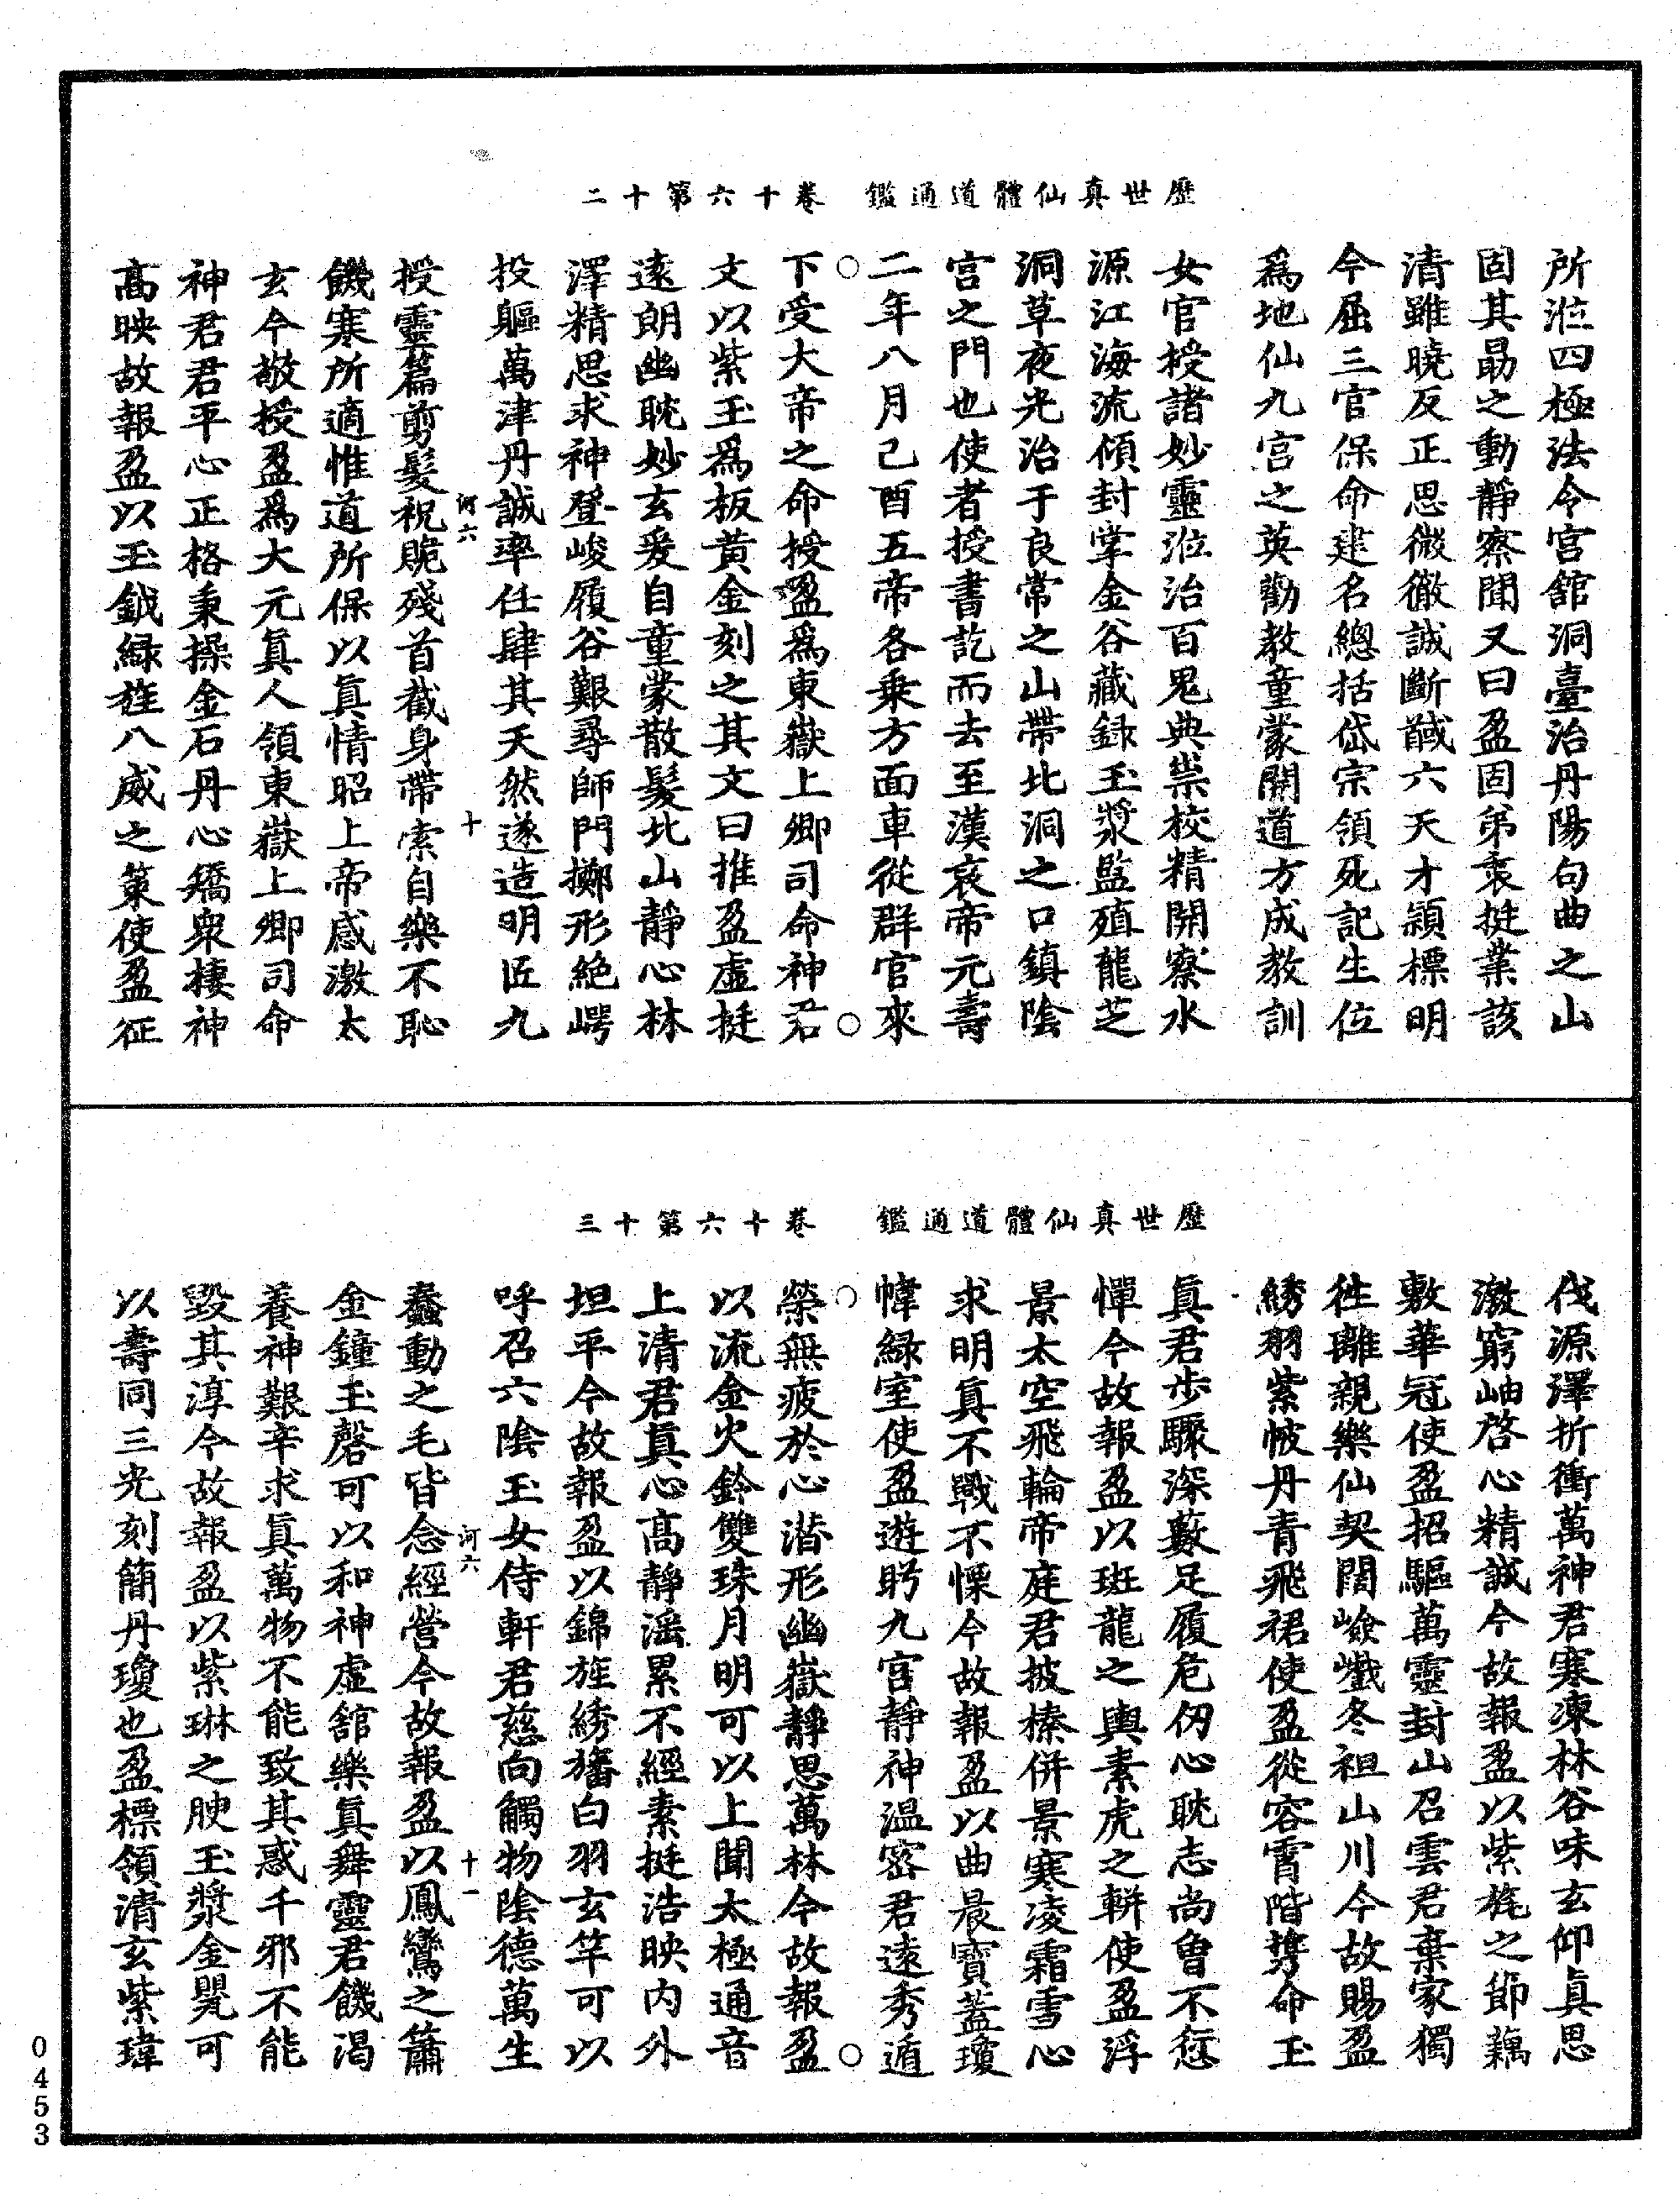 歷世真仙體道通鑑　卷十六第十二
所涖四極法令宮館洞臺治丹陽句曲之山
固其勗之動靜察聞又曰盈固弟衷挺業該
清雖曉反正思微徹誠斷馘六天才頴標明
今屈三官保命建名總括岱宗領死記生位
爲地仙九宮之英勸教童蒙開道方成教訓
女官授諸妙靈涖治百鬼典祟校精開察水
源江海流傾封掌金谷藏録玉漿監殖龍芝
洞草夜光治于良常之山帶北洞之口鎮陰
宮之門也使者授書訖而去至漢哀帝元壽
二年八月己酉五帝各乗方面車從群官來
下受大帝之命授盈爲東嶽上卿司命神君
文以紫玉爲板黄金刻之其文曰推盈虛挺
遠朗幽耽妙玄爰自童蒙散髮北山靜心林
澤精思求神登峻履谷艱尋師門擲形絶崿
投軀萬津丹誠率任肆其天然遂造明匠九
授靈篇剪髮祝跪殘首截身帶索自樂不恥
饑寒所適惟道所保以眞情昭上帝感激太
玄今敬授盈爲大元眞人領東嶽上卿司命
神君君平心正格秉操金石丹心矯衆棲神
高映故報盈以玉鉞緑旌八威之策使盈征
河六
十
歷世真仙體道通鑑　卷十六第十三
伐源澤折衝萬神君寒凍林谷味玄仰眞思
激窮岫啓心精誠今故報盈以紫旄之節藕
敷華冠使盈招驅萬靈封山召雲君棄家獨
徃離親樂仙契闊嶮巇冬袒山川今故賜盈
綉羽紫帔丹青飛裙使盈從容霄階攜命玉
眞君步驟深藪足履危仞心耽志尚曾不愆
憚今故報盈以斑龍之輿素虎之軿使盈浮
景太空飛輪帝庭君披榛併景寒凌霜雪心
求明眞不戰不慄今故報盈以曲晨寶蓋瓊
幃緑室使盈遊眄九宮靜神温密君遠秀遁
榮無疲於心潜形幽嶽靜思萬林今故報盈
以流金火鈴雙珠月明可以上聞太極通音
上清君眞心高靜滛累不經素挺浩映内外
坦平今故報盈以錦旌綉旛白羽玄竿可以
呼召六陰玉女侍軒君慈向觸物陰德萬生
蠢動之毛皆念經營今故報盈以鳳鸞之簫
金鐘玉磬可以和神虛舘樂眞舞靈君饑渴
養神艱辛求眞萬物不能致其惑千邪不能
毀其淳今故報盈以紫琳之腴玉漿金甖可
以壽同三光刻簡丹瓊也盈標領清玄紫瑋
河六
十一
0453